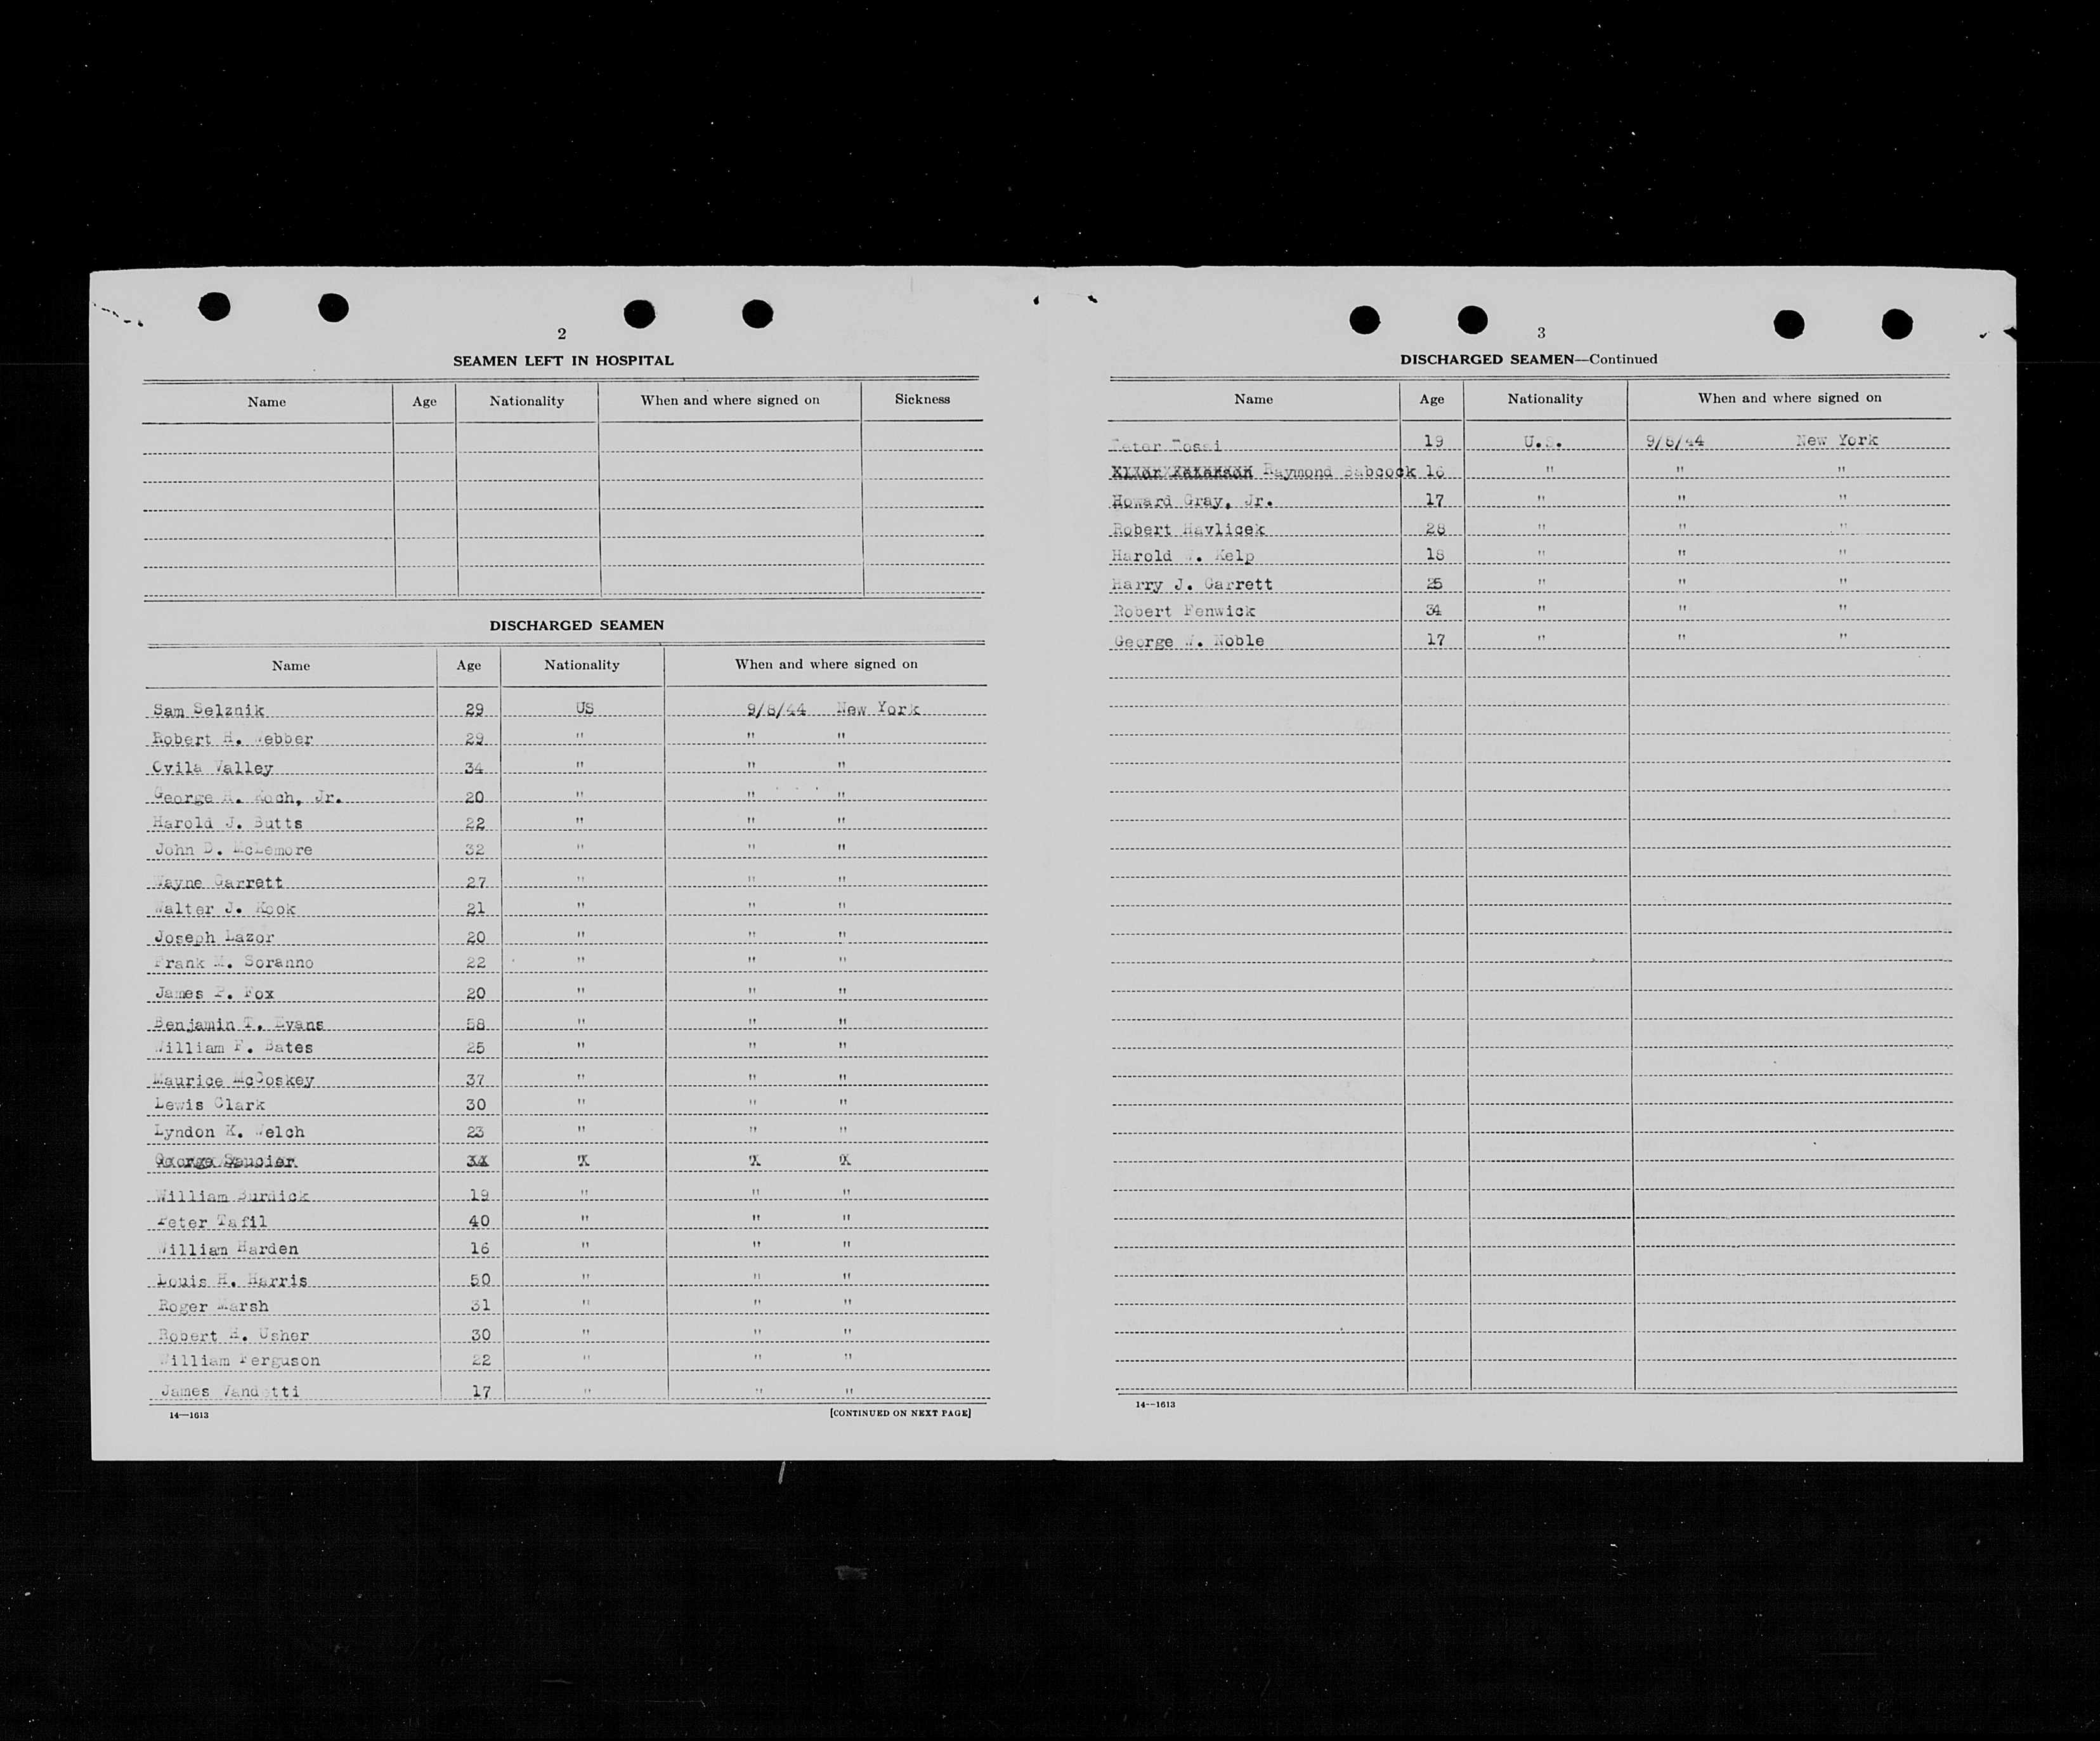 2
SEAMEN LEFT IN HOSPITAL
Name Age Nationality When and where signed on Sickness
DISCHARGED SEAMEN
Name Age Nationality When and where signed on
Sam Selznik 29 US 9/8/44 New York
Robert H. Webber 29 " " "
Ovila Valley 34 " " "
George H. Koch, Jr. 20 " " "
Harold J. Butts 22 " " "
John D. McLemore 32 " " "
Wayne Garrett 27 " " "
Walter J. Kook 21 " " "
Joseph Lazor 20 " " "
Frank M. Soranno 22 " " "
James P. Fox 20 " " "
Benjamin T. Evans 58 " " "
William F. Bates 25 " " "
Maurice McCoskey 37 " " "
Lewis Clark 30 " " "
Lyndon K. Welch 23 " " "
George Saucier 34 " " "
William Burdick 19 " " "
Peter Tafil 40 " " "
William Harden 16 " " "
Louis H. Harris 50 " " "
Roger Marsh 31 " " "
Robert H. Usher 30 " " "
William Ferguson 22 " " "
James Vandetti 17 " " "
14—1613 [CONTINUED ON NEXT PAGE]
3
DISCHARGED SEAMEN—Continued
Name Age Nationality When and where signed on
Peter 19 U.S. 9/8/44 New York
Raymond Babcock 16 " " "
Howard Gray, Jr. 17 " " "
Robert Havlicek 28 " " "
Harold W. Kelp 18 " " "
Harry J. Garrett 25 " " "
Robert Fenwick 34 " " "
George W. Noble 17 " " "
14—1613